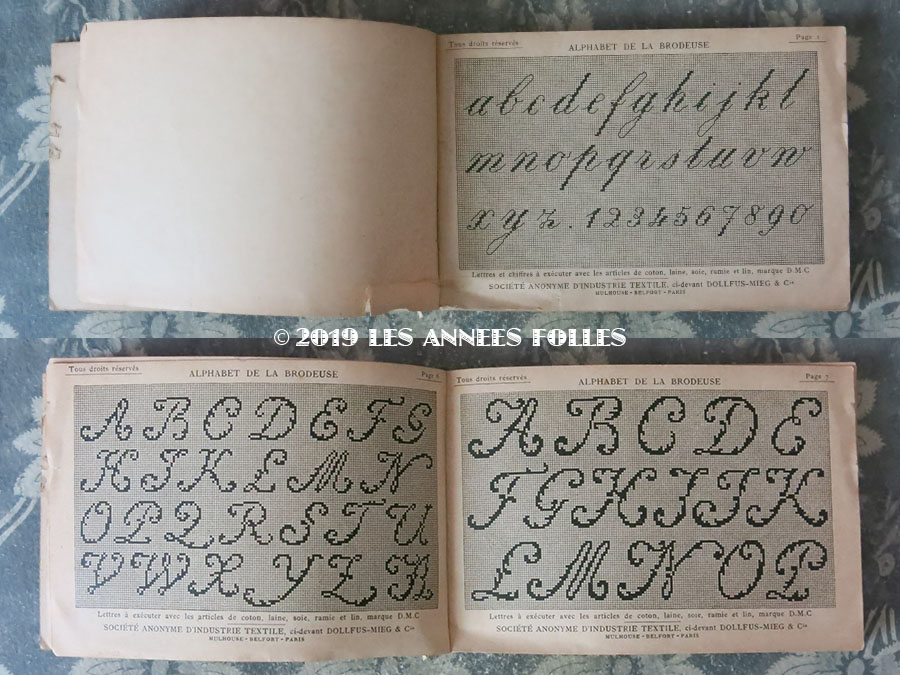 Tous droits réservés
ALPHABET DE LA BRODEUSE
Page 1
a b c d e f g h i j k l
m n o p q r s t u v w
x y z . 1 2 3 4 5 6 7 8 9 0
Lettres et chiffres à exécuter avec les articles de coton, laine, soie, ramie et lin, marque D.M.C
SOCIÉTÉ ANONYME D'INDUSTRIE TEXTILE, ci-devant DOLLFUS-MIEG & Cie
MULHOUSE - BELFORT - PARIS
© 2019 LES ANNEES FOLLES
Tous droits réservés
ALPHABET DE LA BRODEUSE
Page 6
A B C D E F G
H I K L M N
O P Q R S T U
V W X Y Z
Lettres à exécuter avec les articles de coton, laine, soie, ramie et lin, marque D.M.C
SOCIÉTÉ ANONYME D'INDUSTRIE TEXTILE, ci-devant DOLLFUS-MIEG & Cie
MULHOUSE - BELFORT - PARIS
Tous droits réservés
ALPHABET DE LA BRODEUSE
Page 7
A B C D E
F G H I J K
L M N O P
Lettres à exécuter avec les articles de coton, laine, soie, ramie et lin, marque D.M.C
SOCIÉTÉ ANONYME D'INDUSTRIE TEXTILE, ci-devant DOLLFUS-MIEG & Cie
MULHOUSE - BELFORT - PARIS